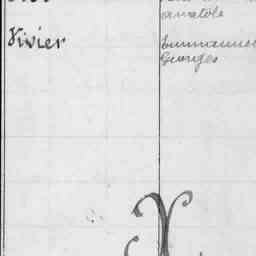 anatole
Vivier Emmanuel
Georges